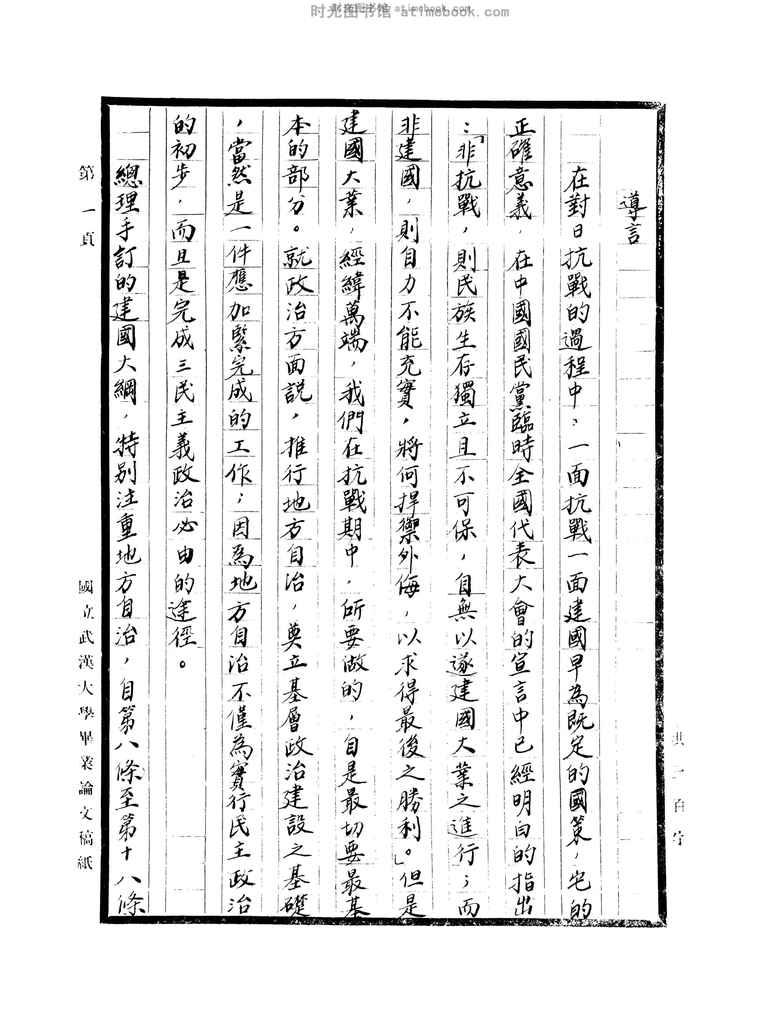 时光图书馆 atimebook.com
導言
在對日抗戰的過程中，一面抗戰一面建國早為既定的國策，它的
正確意義，在中國國民黨臨時全國代表大會的宣言中已經明白的指出
：「非抗戰，則民族生存獨立且不可保，自無以遂建國大業之進行；而
非建國，則自力不能充實，將何捍禦外侮，以求得最後之勝利。」但是
建國大業，經緯萬端，我們在抗戰期中，所要做的，自是最切要最基
本的部分。就政治方面説，推行地方自治，奠立基層政治建設之基礎
，當然是一件應加緊完成的工作；因為地方自治不僅為實行民主政治
的初步，而且是完成三民主義政治必由的途徑。
總理手訂的建國大綱，特別注重地方自治，自第八條至第十八條
第一頁
國立武漢大學畢業論文稿紙